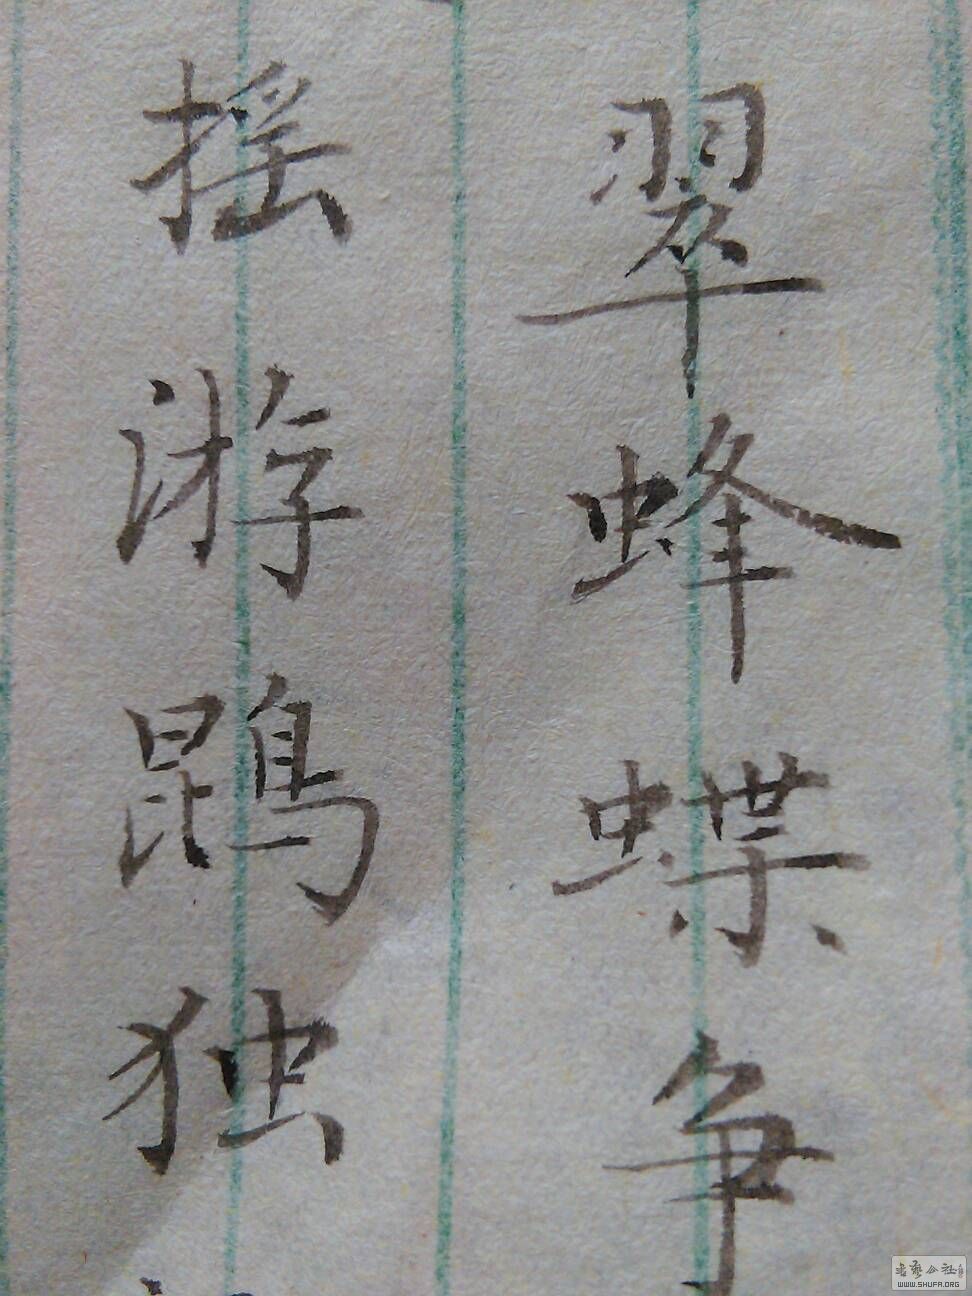 翠蜂蝶争
摇游鹍独
书艺公社
WWW.SHUFA.ORG